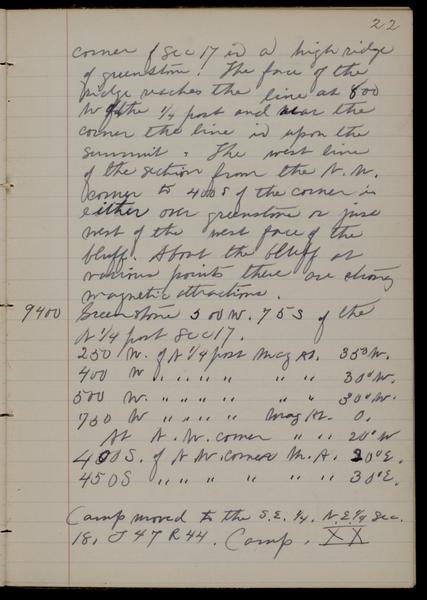 22
corner of Sec 17 is a high ridge
of greenstone. The face of the
ridge reaches the line at 800
W of the 1/4 post and near the
corner the line is upon the
summit. The west line
of the section from the N.W.
corner to 400 S of the corner is
either over greenstone or just
west of the west face of the
bluff. About the bluff at
various points there are strong
magnetic attractions.
9400 Greenstone 500 W. 75 S of the
N 1/4 post Sec 17.
250 W. of N 1/4 post Mag At. 35° W.
400 W " " " " " " 30° W.
500 W. " " " " " " 30° W.
750 W " " " " Mag At. 0.
At N.W. corner " " 20° W
400 S. of N.W. corner M.A. 20° E.
450 S " " " " " " 30° E.
Camp moved to the S.E. 1/4, N.E. 1/4 Sec.
18, T 47 R 44. Camp. XX